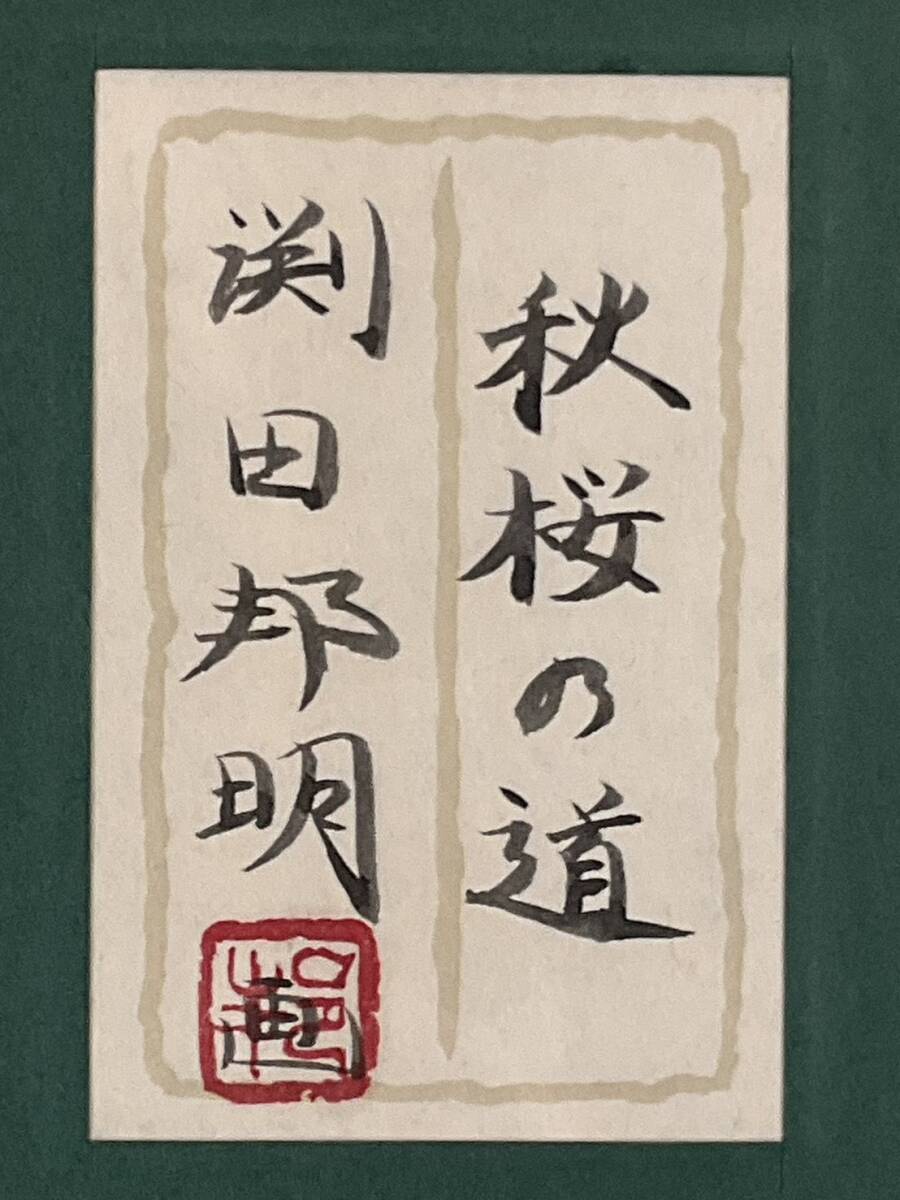 秋桜の道
渕田邦明画